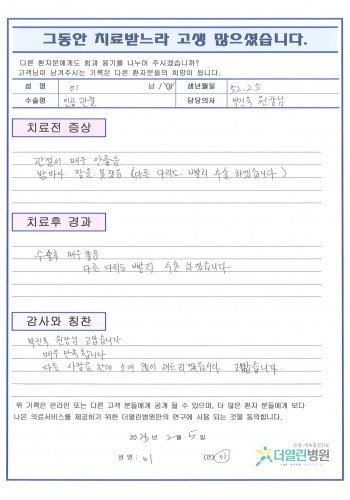 그동안 치료받느라 고생 많으셨습니다.
다른 환자분에게도 힘과 용기를 나누어 주시겠습니까?
고객님이 남겨주시는 기록은 다른 환자분들의 희망이 됩니다.
성 명 이 남 / 여 생년월일 52.25
수술명 인공관절 담당의사 박진욱 원장님
치료전 증상
관절이 매우 안좋음
밤마다 잠을 못잤음 (다른 다리도 빨리 수술 하겠습니다)
치료후 경과
수술후 매우 좋음
다른 다리도 빨리 수술 하겠습니다
감사와 칭찬
박진욱 원장님 고맙습니다
매우 만족합니다
다른 사람들 한테 소개 많이 해드리겠습니다 고맙습니다
위 기록은 온라인 또는 다른 고객 분들에게 공개 될 수 있으며, 더 많은 환자 분들에게 보다
나은 의료서비스를 제공하기 위한 더열린병원만의 연구에 사용 되는 것을 동의합니다.
2 월 5 일
성 명 : 이 (인)
더열린병원